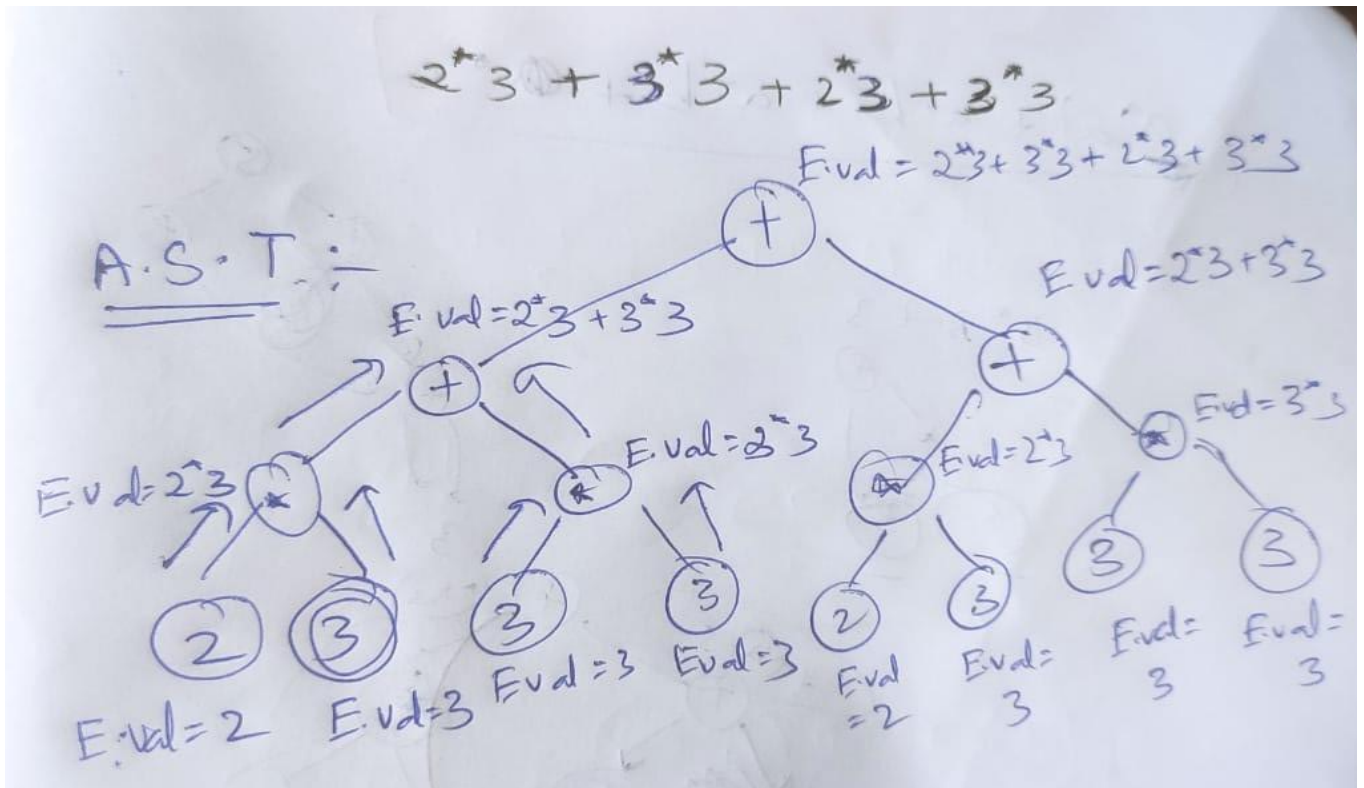 2*3 + 3*3 + 2*3 + 3*3
E.val = 2*3 + 3*3 + 2*3 + 3*3
+
A.S.T :-
E val = 2*3 + 3*3
E. val = 2*3 + 3*3
+
+
E.val = 3*3
E. val = 3*3
E.val = 2*3
E.val = 2*3
*
*
*
*
2 3 3 3 2 3 3 3
E.val = 2 E.val = 3 E val = 3 E val = 3 E.val = 2 E.val = 3 E.val = 3 E.val = 3